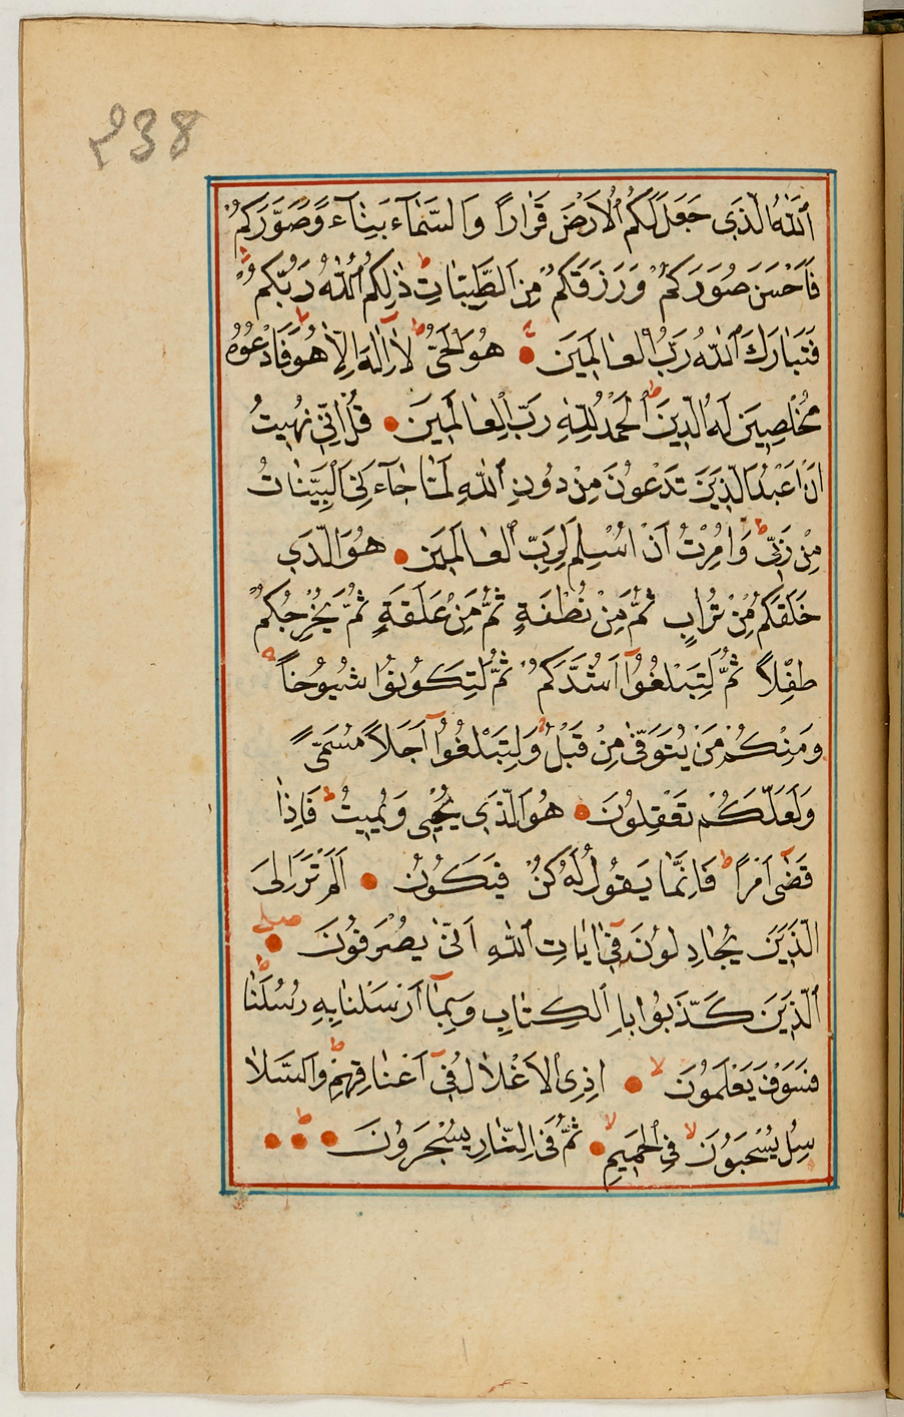 238
اَللّٰهُ الَّذِي جَعَلَ لَكُمُ الْاَرْضَ قَرَارًا وَالسَّمَاءَ بِنَاءً وَصَوَّرَكُمْ
فَاَحْسَنَ صُوَرَكُمْ وَرَزَقَكُمْ مِنَ الطَّيِّبَاتِ ط ذٰلِكُمُ اللّٰهُ رَبُّكُمْ
فَتَبَارَكَ اللّٰهُ رَبُّ الْعَالَمِينَ هُوَ الْحَيُّ ط لَا اِلٰهَ اِلَّا هُوَ فَادْعُوهُ
مُخْلِصِينَ لَهُ الدِّينَ ط اَلْحَمْدُ لِلّٰهِ رَبِّ الْعَالَمِينَ قُلْ اِنِّي نُهِيتُ
اَنْ اَعْبُدَ الَّذِينَ تَدْعُونَ مِنْ دُونِ اللّٰهِ لَمَّا جَاءَنِيَ الْبَيِّنَاتُ
مِنْ رَبِّي ط وَاُمِرْتُ اَنْ اُسْلِمَ لِرَبِّ الْعَالَمِينَ هُوَ الَّذِي
خَلَقَكُمْ مِنْ تُرَابٍ ثُمَّ مِنْ نُطْفَةٍ ثُمَّ مِنْ عَلَقَةٍ ثُمَّ يُخْرِجُكُمْ
طِفْلًا ثُمَّ لِتَبْلُغُوا اَشُدَّكُمْ ثُمَّ لِتَكُونُوا شُيُوخًا
وَمِنْكُمْ مَنْ يُتَوَفّٰى مِنْ قَبْلُ وَلِتَبْلُغُوا اَجَلًا مُسَمًّى
وَلَعَلَّكُمْ تَعْقِلُونَ هُوَ الَّذِي يُحْيِي وَيُمِيتُ ط فَاِذَا
قَضٰى اَمْرًا ط فَاِنَّمَا يَقُولُ لَهُ كُنْ فَيَكُونُ اَلَمْ تَرَ اِلَى
الَّذِينَ يُجَادِلُونَ فِي اٰيَاتِ اللّٰهِ اَنّٰى يُصْرَفُونَ صلى
اَلَّذِينَ كَذَّبُوا بِالْكِتَابِ وَبِمَا اَرْسَلْنَا بِهِ رُسُلَنَا ط
فَسَوْفَ يَعْلَمُونَ لا اِذِ الْاَغْلَالُ فِي اَعْنَاقِهِمْ ط وَالسَّلَا
سِلُ يُسْحَبُونَ لا فِي الْحَمِيمِ لا ثُمَّ فِي النَّارِ يُسْجَرُونَ ط